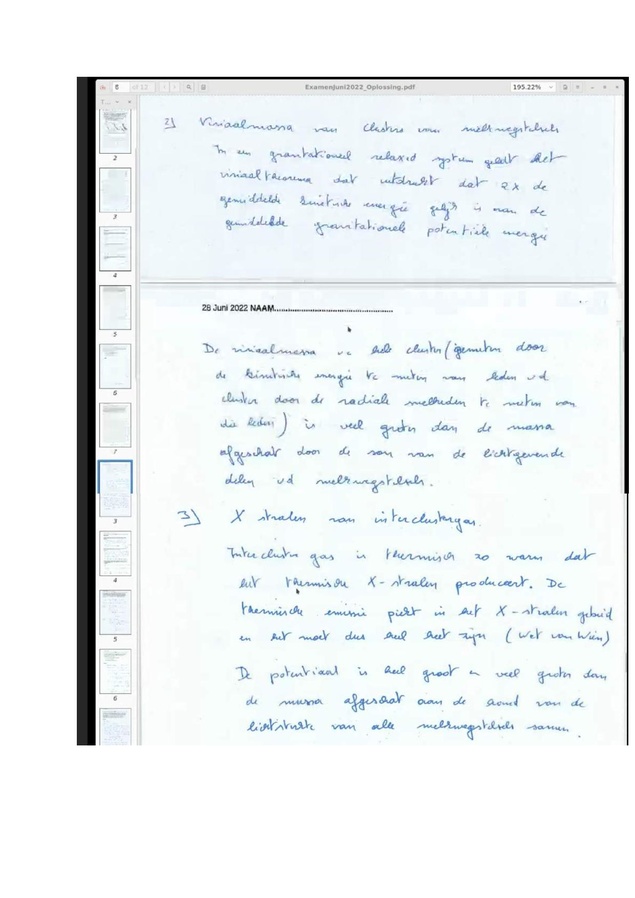 8 of 12
ExamenJuni2022_Oplossing.pdf
195.22%
T...
2
3
4
5
6
7
3
4
5
6
2) Viriaalmassa van clusters van melkwegstelsels
In een gravitationeel relaxed systeem geldt het
viriaaltheorema dat uitdrukt dat 2x de
gemiddelde kinetische energie gelijk is aan de
gemiddelde gravitationele potentiële energie
28 Juni 2022 NAAM
De viriaalmassa vd hele cluster (gemeten door
de kinetische energie te meten van leden vd
cluster door de radiale snelheden te meten van
die leden) is veel groter dan de massa
afgeschat door de som van de lichtgevende
delen vd melkwegstelsels.
3) X stralen van interclustergas.
Intercluster gas is thermisch zo warm dat
het thermische X-stralen produceert. De
thermische emissie piekt in het X-stralen gebied
en het moet dus heel heet zijn (Wet van Wien)
De potentiaal is heel groot en veel groter dan
de massa afgeschat aan de hand van de
lichtsterkte van alle melkwegstelsels samen.